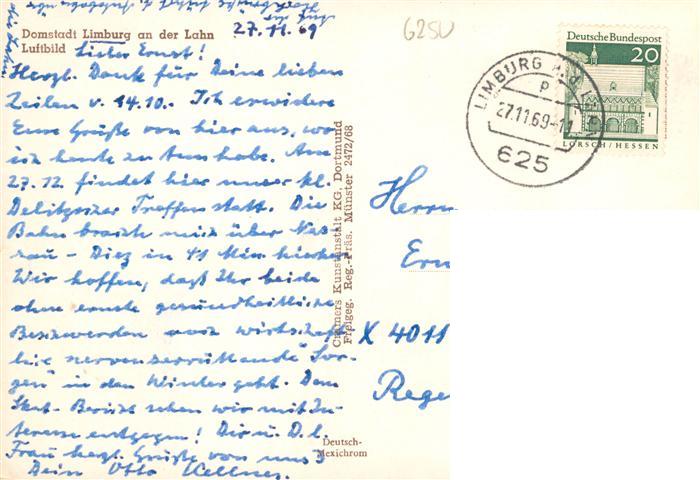 27.11.69
Domstadt Limburg an der Lahn
Luftbild
Lieber Ernst!
Herzl. Dank für Deine lieben
Zeilen v. 14.10. Ich erwidere
Eure Grüße von hier aus, wo
ich heute zu tun habe. Am
27.12. findet hier unser kl.
Delitzscher Treffen statt. Die
Bahn brachte mich über Nas
sau - Diez in 41 Min. hierher
Wir hoffen, daß Ihr beide
ohne ernste gesundheitliche
Beschwerden und wirtschaft
liche nervenzerrüttende "Sor-
gen" in den Winter geht. Dem
Skat-Bericht sehen wir mit In-
teresse entgegen! Dir u. D. l.
Frau herzl. Grüße von uns 3
Dein Otto Kellner
Cramers Kunstanstalt KG. Dortmund
Freigeg. Reg.-Präs. Münster 2472/68
Deutsch-
Mexichrom
6250
LIMBURG
27.11.69-11
625
Deutsche Bundespost
20
LORSCH/HESSEN
Herrn
Ern
X 4011
Rege